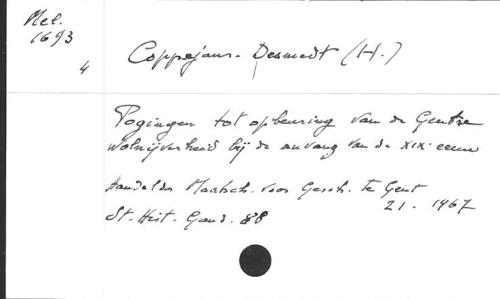 Mel.
1693
4
Coppejans-Desmedt (H.)
Pogingen tot opbeuring van de Gentse
wolnijverheid bij de aanvang van de XIXe eeuw
Handel. der Maatsch. voor Gesch. te Gent
21. 1967
St. Hist. Gand. 88